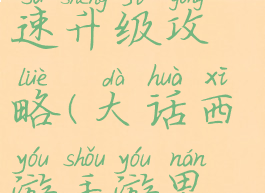 sù shēng jí gōng
速升级攻
lüè dà huà xī
略(大话西
yóu shǒu yóu nán
游手游男